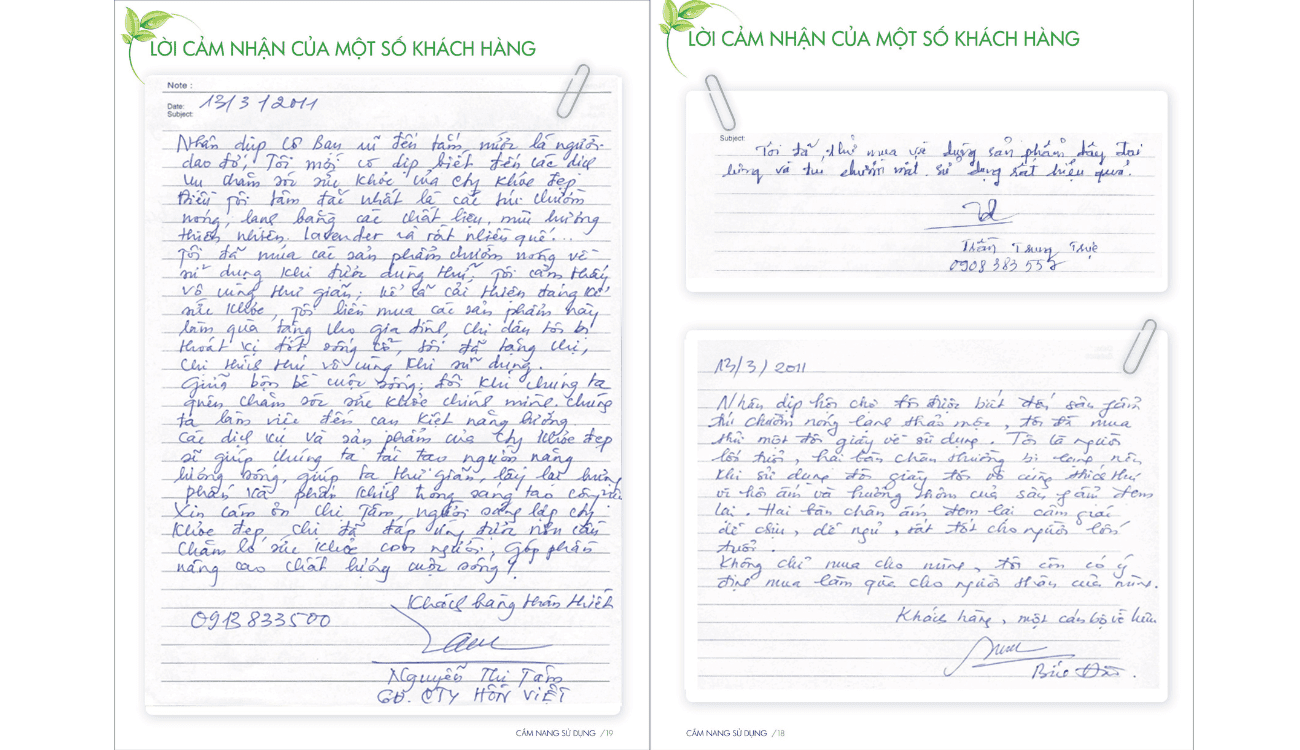 LỜI CẢM NHẬN CỦA MỘT SỐ KHÁCH HÀNG
Note :
Date: 13/3/2011
Subject:
Nhân dịp cô bạn đến tắm, mức là người
dao đỏ, Tôi mới có dịp biết đến các dịch
vụ chăm sóc sức khỏe của Cty Khỏe Đẹp
Điều tôi tâm đắc nhất là các túi chườm
nóng, lạnh bằng các chất liệu, mùi hương
thiên nhiên. lavender và rất nhiều quế...
Tôi đã mua các sản phẩm chườm nóng về
sử dụng khi được dùng thử, tôi cảm thấy
vô cùng thư giãn, kể cả cải thiện đáng kể
sức khỏe, tôi liền mua các sản phẩm này
làm quà tặng cho gia đình, chị dâu tôi bị
thoát vị đốt sống cổ, tôi đã tặng chị,
chị thích thú vô cùng khi sử dụng.
Giữa bộn bề cuộc sống, đôi khi chúng ta
quên chăm sóc sức khỏe chính mình. chúng
ta làm việc đến cạn kiệt năng lượng.
Các dịch vụ và sản phẩm của Cty Khỏe Đẹp
sẽ giúp chúng ta tái tạo nguồn năng
lượng sống, giúp ta thư giãn, lấy lại hưng
phấn và phấn khích trong sáng tạo công việc
Xin cám ơn chị Tâm, người sáng lập cty
Khỏe đẹp, chị đã đáp ứng được nhu cầu
chăm lo sức khỏe con người, góp phần
nâng cao chất lượng cuộc sống!
Khách hàng thân thiết
0913833500
Nguyễn Thị Tâm
GĐ. CTY HỒN VIỆT
CẨM NANG SỬ DỤNG /19
LỜI CẢM NHẬN CỦA MỘT SỐ KHÁCH HÀNG
Subject:
Tôi đã thử mua về dùng sản phẩm dây đai
lưng và túi chườm mắt. sử dụng rất hiệu quả.
Trần Trung Trực
0908 383 557
13/3/2011
Nhân dịp hội chợ tôi được biết đến sản phẩm
túi chườm nóng lạnh thảo mộc, tôi đã mua
thử một đôi giày về sử dụng. Tôi là người
lớn tuổi, hai bàn chân thường bị lạnh nên
khi sử dụng đôi giày tôi vô cùng thích thú
vì hơi ấm và hương thơm của sản phẩm đem
lại. Hai bàn chân ấm đem lại cảm giác
dễ chịu, dễ ngủ, rất tốt cho người lớn
tuổi.
Không chỉ mua cho mình, tôi còn có ý
định mua làm quà cho người thân của mình.
Khách hàng, một cán bộ về hưu
CẨM NANG SỬ DỤNG /18